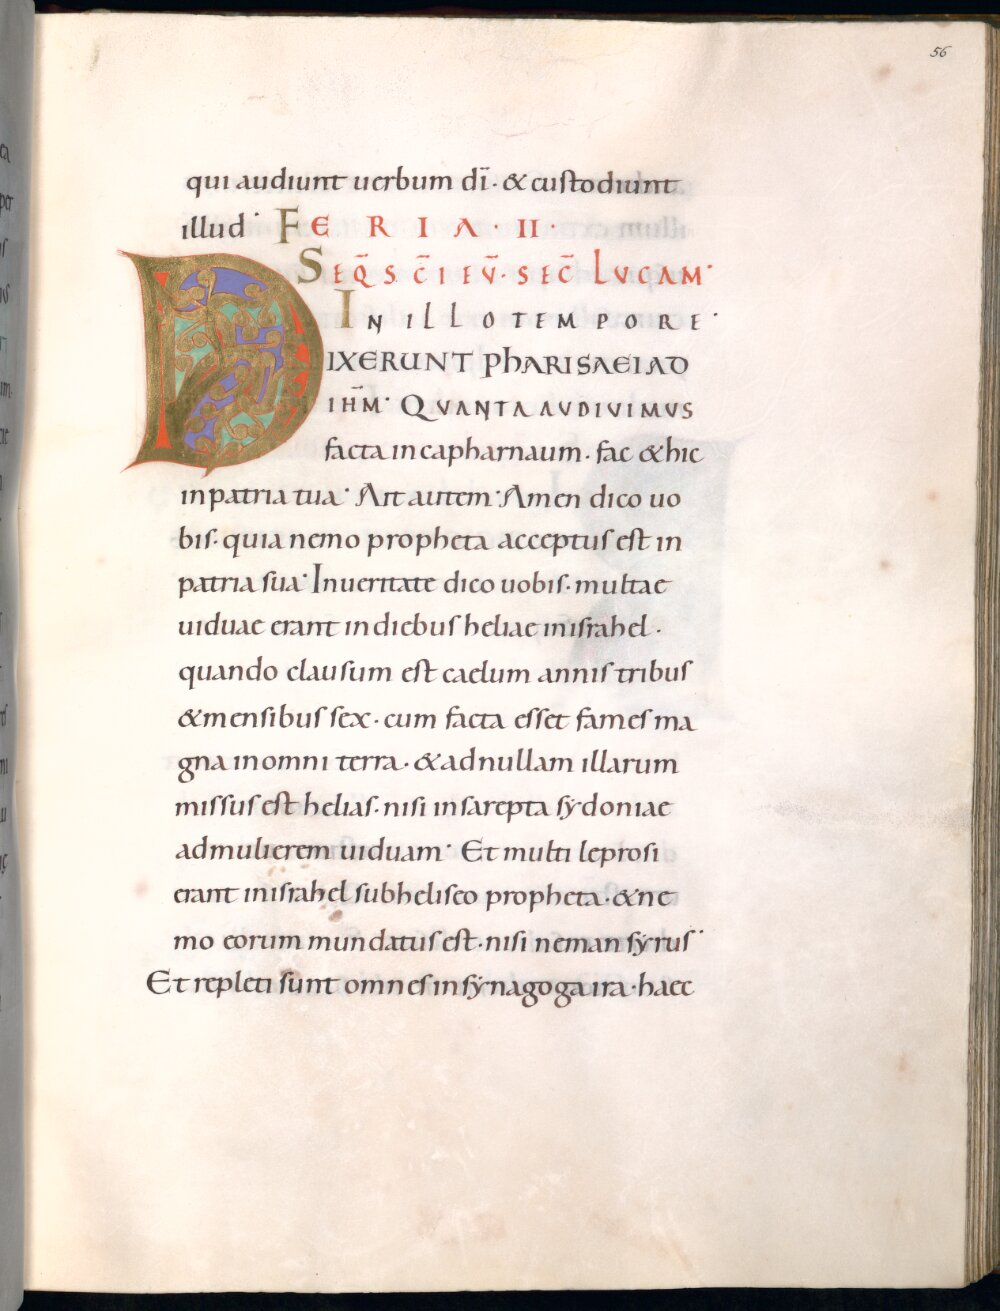 56
qui audiunt uerbum dī · & custodiunt
illud · FERIA · II ·
SEQ̄S SC̄I EV̄ · SEC̄ LVCAM ·
IN ILLO TEMPORE ·
DIXERUNT PHARISAEI AD
IHM̄ · QVANTA AVDIVIMVS
facta in capharnaum · fac & hic
in patria tua · Ait autem · Amen dico uo
bis · quia nemo propheta acceptus est in
patria sua · In ueritate dico uobis · multae
uiduae erant in diebus heliae in israhel ·
quando clausum est caelum annis tribus
& mensibus sex · cum facta esset fames ma
gna in omni terra · & ad nullam illarum
missus est helias · nisi in sarepta sydoniae
ad mulierem uiduam · Et multi leprosi
erant in israhel sub heliseo propheta · & ne
mo eorum mundatus est · nisi neman syrus ·
Et repleti sunt omnes in synagoga ira · haec